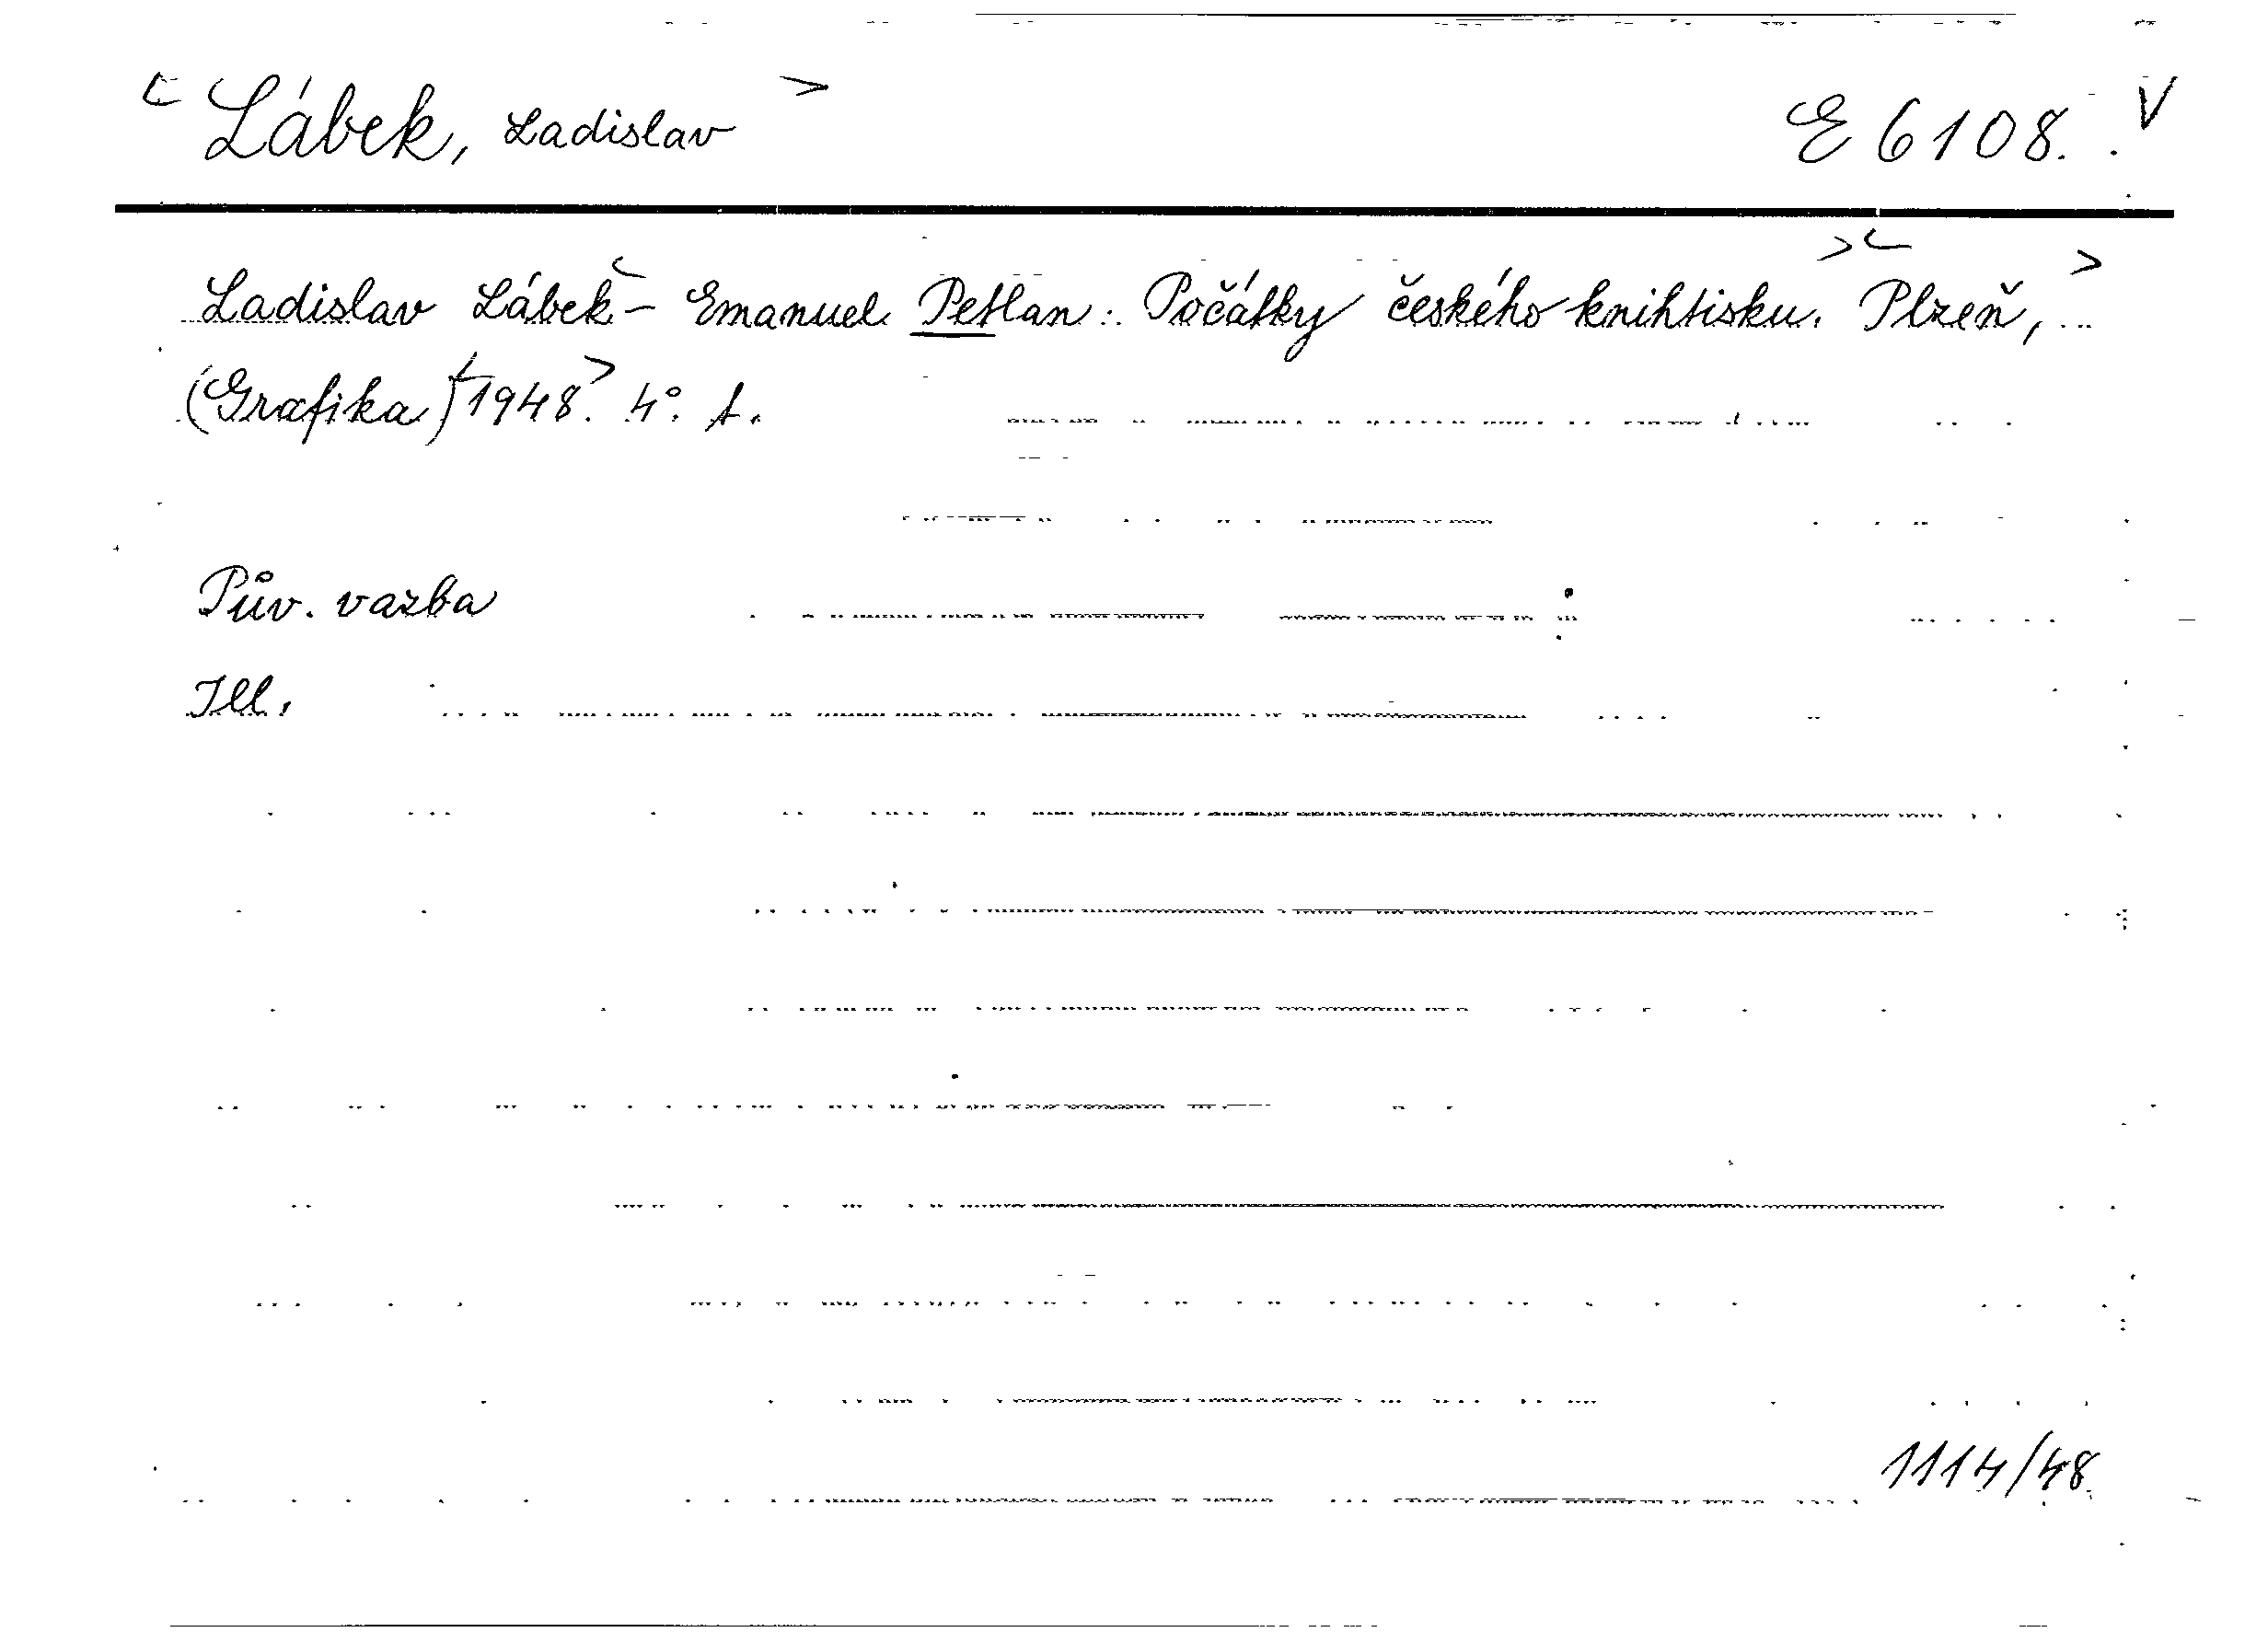 Lábek, Ladislav E 6108. V
Ladislav Lábek - Emanuel Petlan: Počátky českého knihtisku. Plzeň,
(Grafika) 1948. 4°. t.
Pův. vazba
Ill.
1114/48